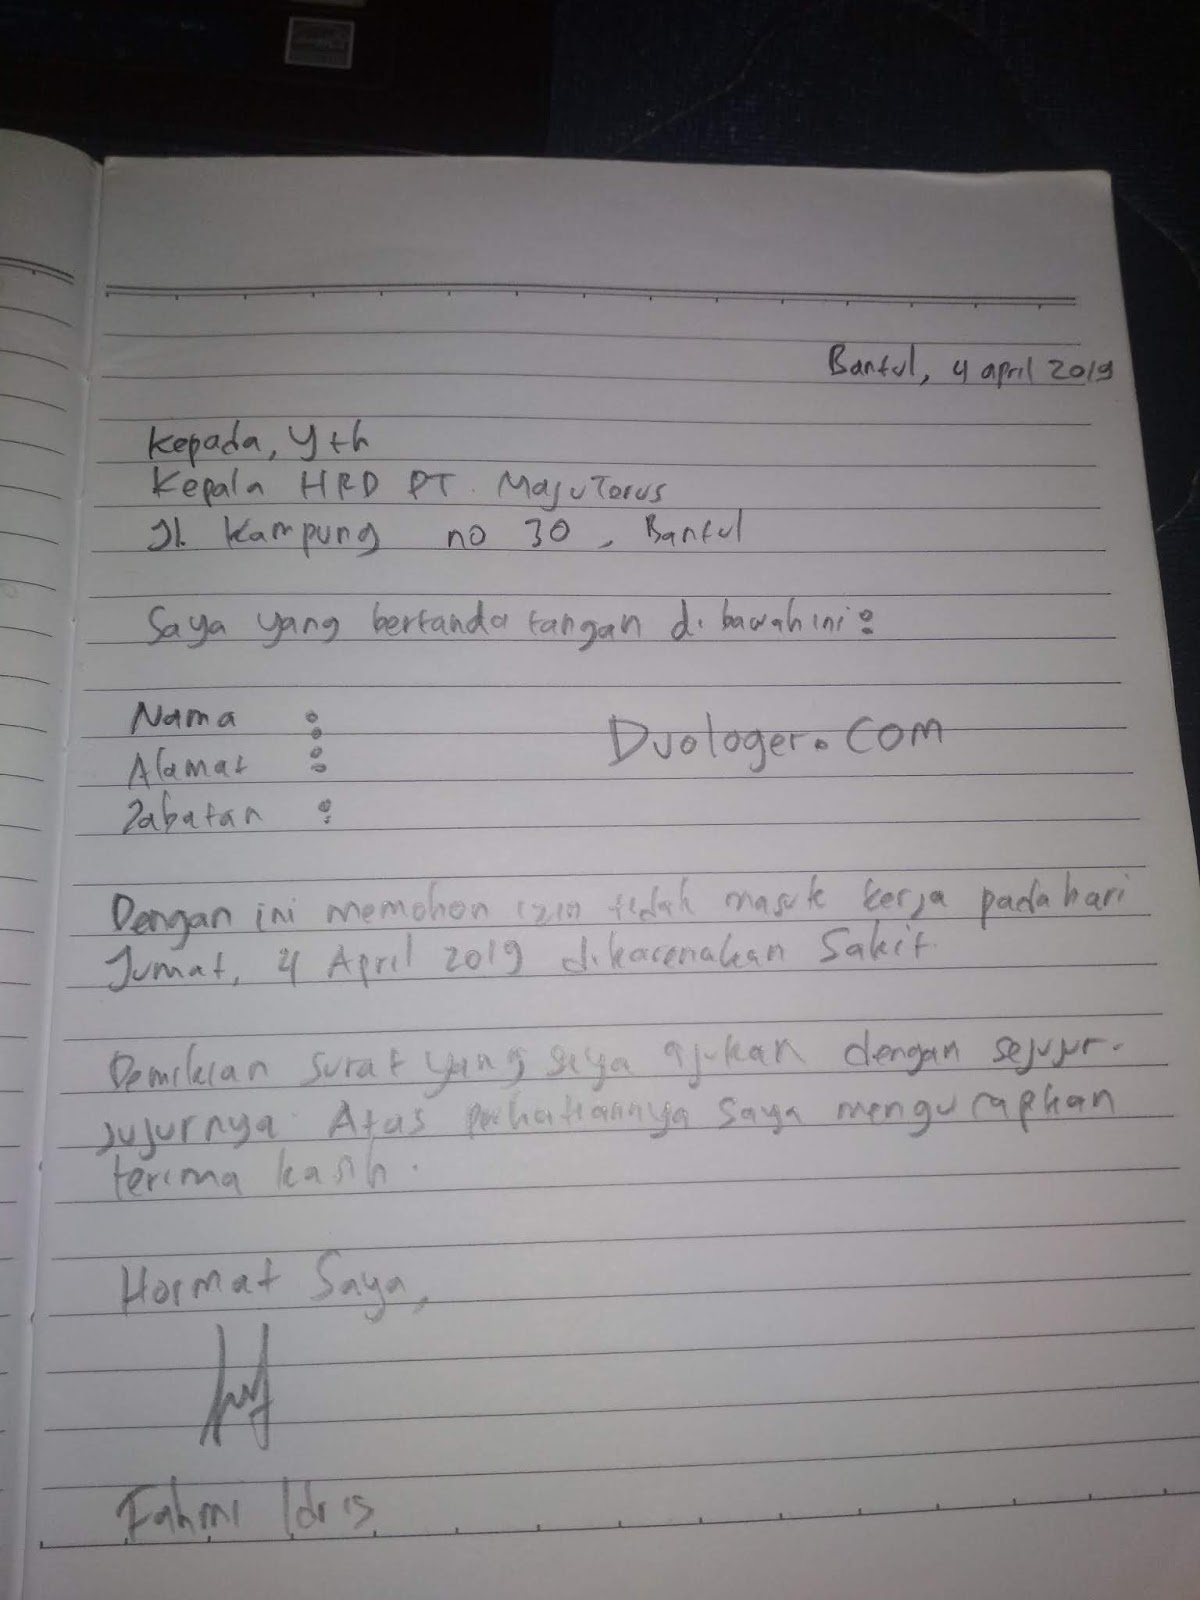 Bantul, 4 april 2019
Kepada, Yth
Kepala HRD PT. Maju Terus
Jl. Kampung no 30, Bantul
Saya yang bertanda tangan di bawah ini :
Nama :
Duologer.com
Alamat :
Jabatan :
Dengan ini memohon izin tidak masuk kerja pada hari
Jumat, 4 April 2019 dikarenakan Sakit.
Demikian surat yang saya ajukan dengan sejujur-
jujurnya. Atas perhatiannya saya mengucapkan
terima kasih.
Hormat Saya,
Fahmi Idris